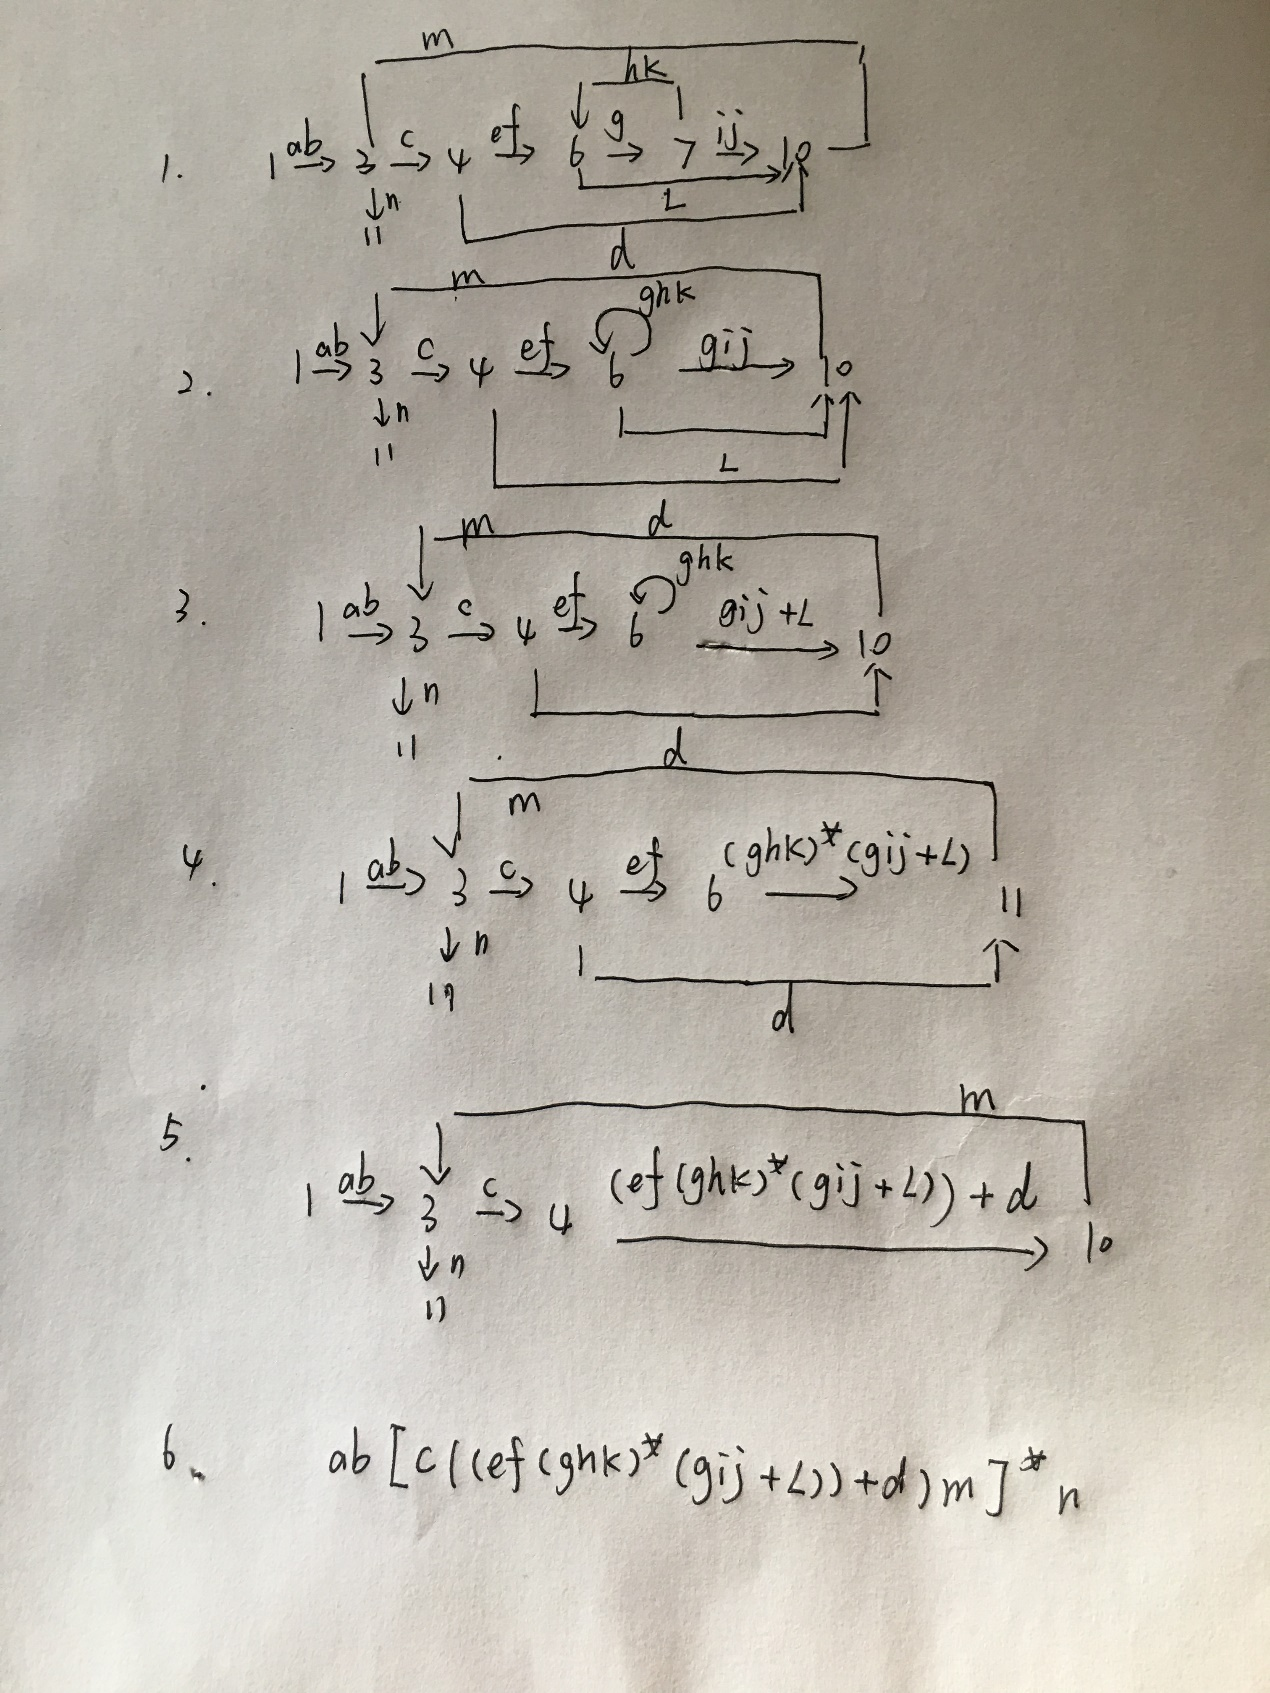 m
hk
1. 1 ab → 3 c → 4 ef → 6 g → 7 ij → 10
↓n L
11
d
m
ghk
2. 1 ab → 3 c → 4 ef → 6 gij → 10
↓n
11 L
d
m
ghk
3. 1 ab → 3 c → 4 ef → 6 gij+L → 10
↓n
11
d
m
4. 1 ab → 3 c → 4 ef → 6 (ghk)*(gij+L) → 11
↓n
11
d
m
5. 1 ab → 3 c → 4 (ef(ghk)*(gij+L))+d → 10
↓n
11
6. ab[c((ef(ghk)*(gij+L))+d)m]*n